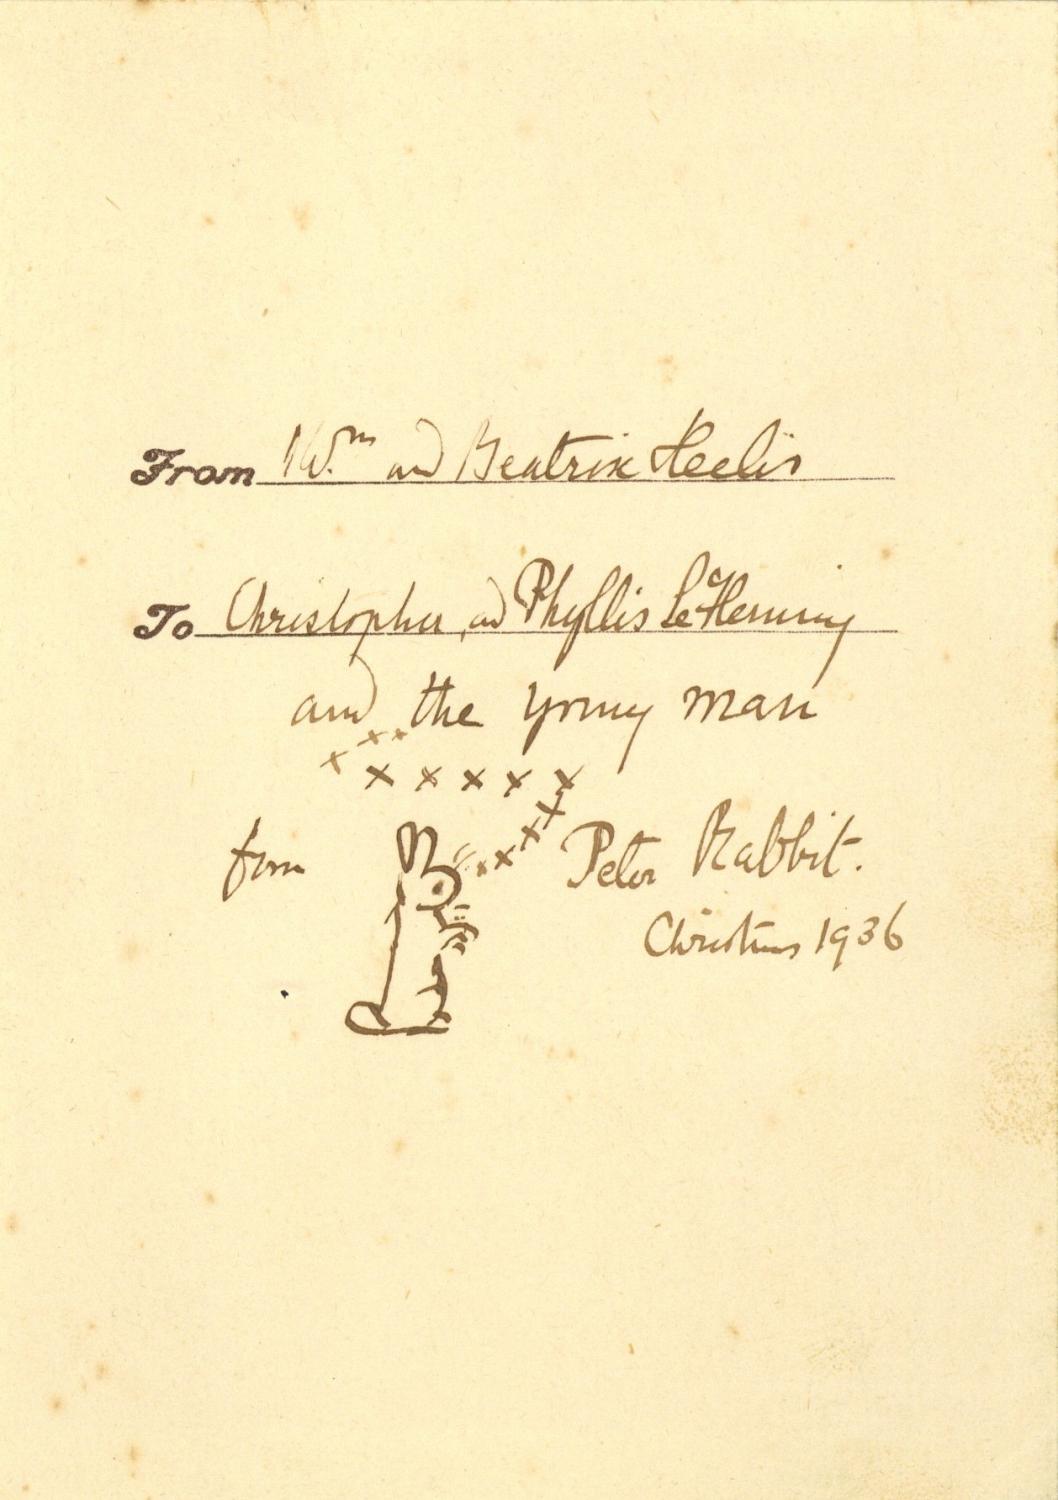 From Wm. and Beatrix Heelis
To Christopher and Phyllis Le Fleming
and the young man
x x x
x x x x x
x
x
x x
from Peter Rabbit.
Christmas 1936